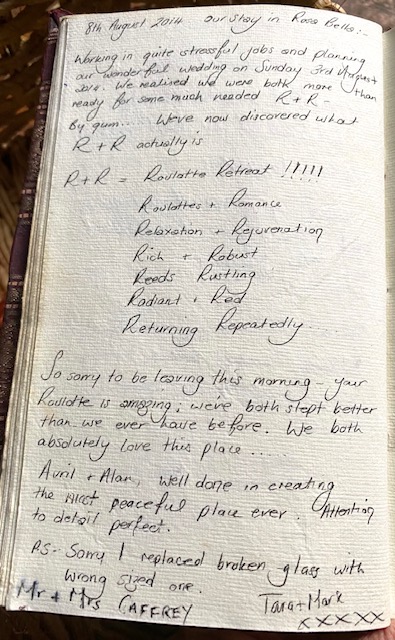 8th August 2014 our stay in Rosa Bella:-
Working in quite stressful jobs and planning
our wonderful wedding on Sunday 3rd August
2014. We realised we were both more than
ready for some much needed R+R-
By gum.. We've now discovered what
R+R actually is
R+R = Roulotte Retreat !!!!!
Roulottes + Romance
Relaxation + Rejuvenation
Rich + Robust
Reeds Rustling
Radiant + Red
Returning Repeatedly.....
So sorry to be leaving this morning - your
Roulotte is amazing; we've both slept better
than we ever have before. We both
absolutely love this place.....
Avril + Alan, well done in creating
the most peaceful place ever. Attention
to detail perfect.
P.S- Sorry I replaced broken glass with
wrong sized one.
Mr + Mrs CAFFREY Tara+Mark
xxxxx